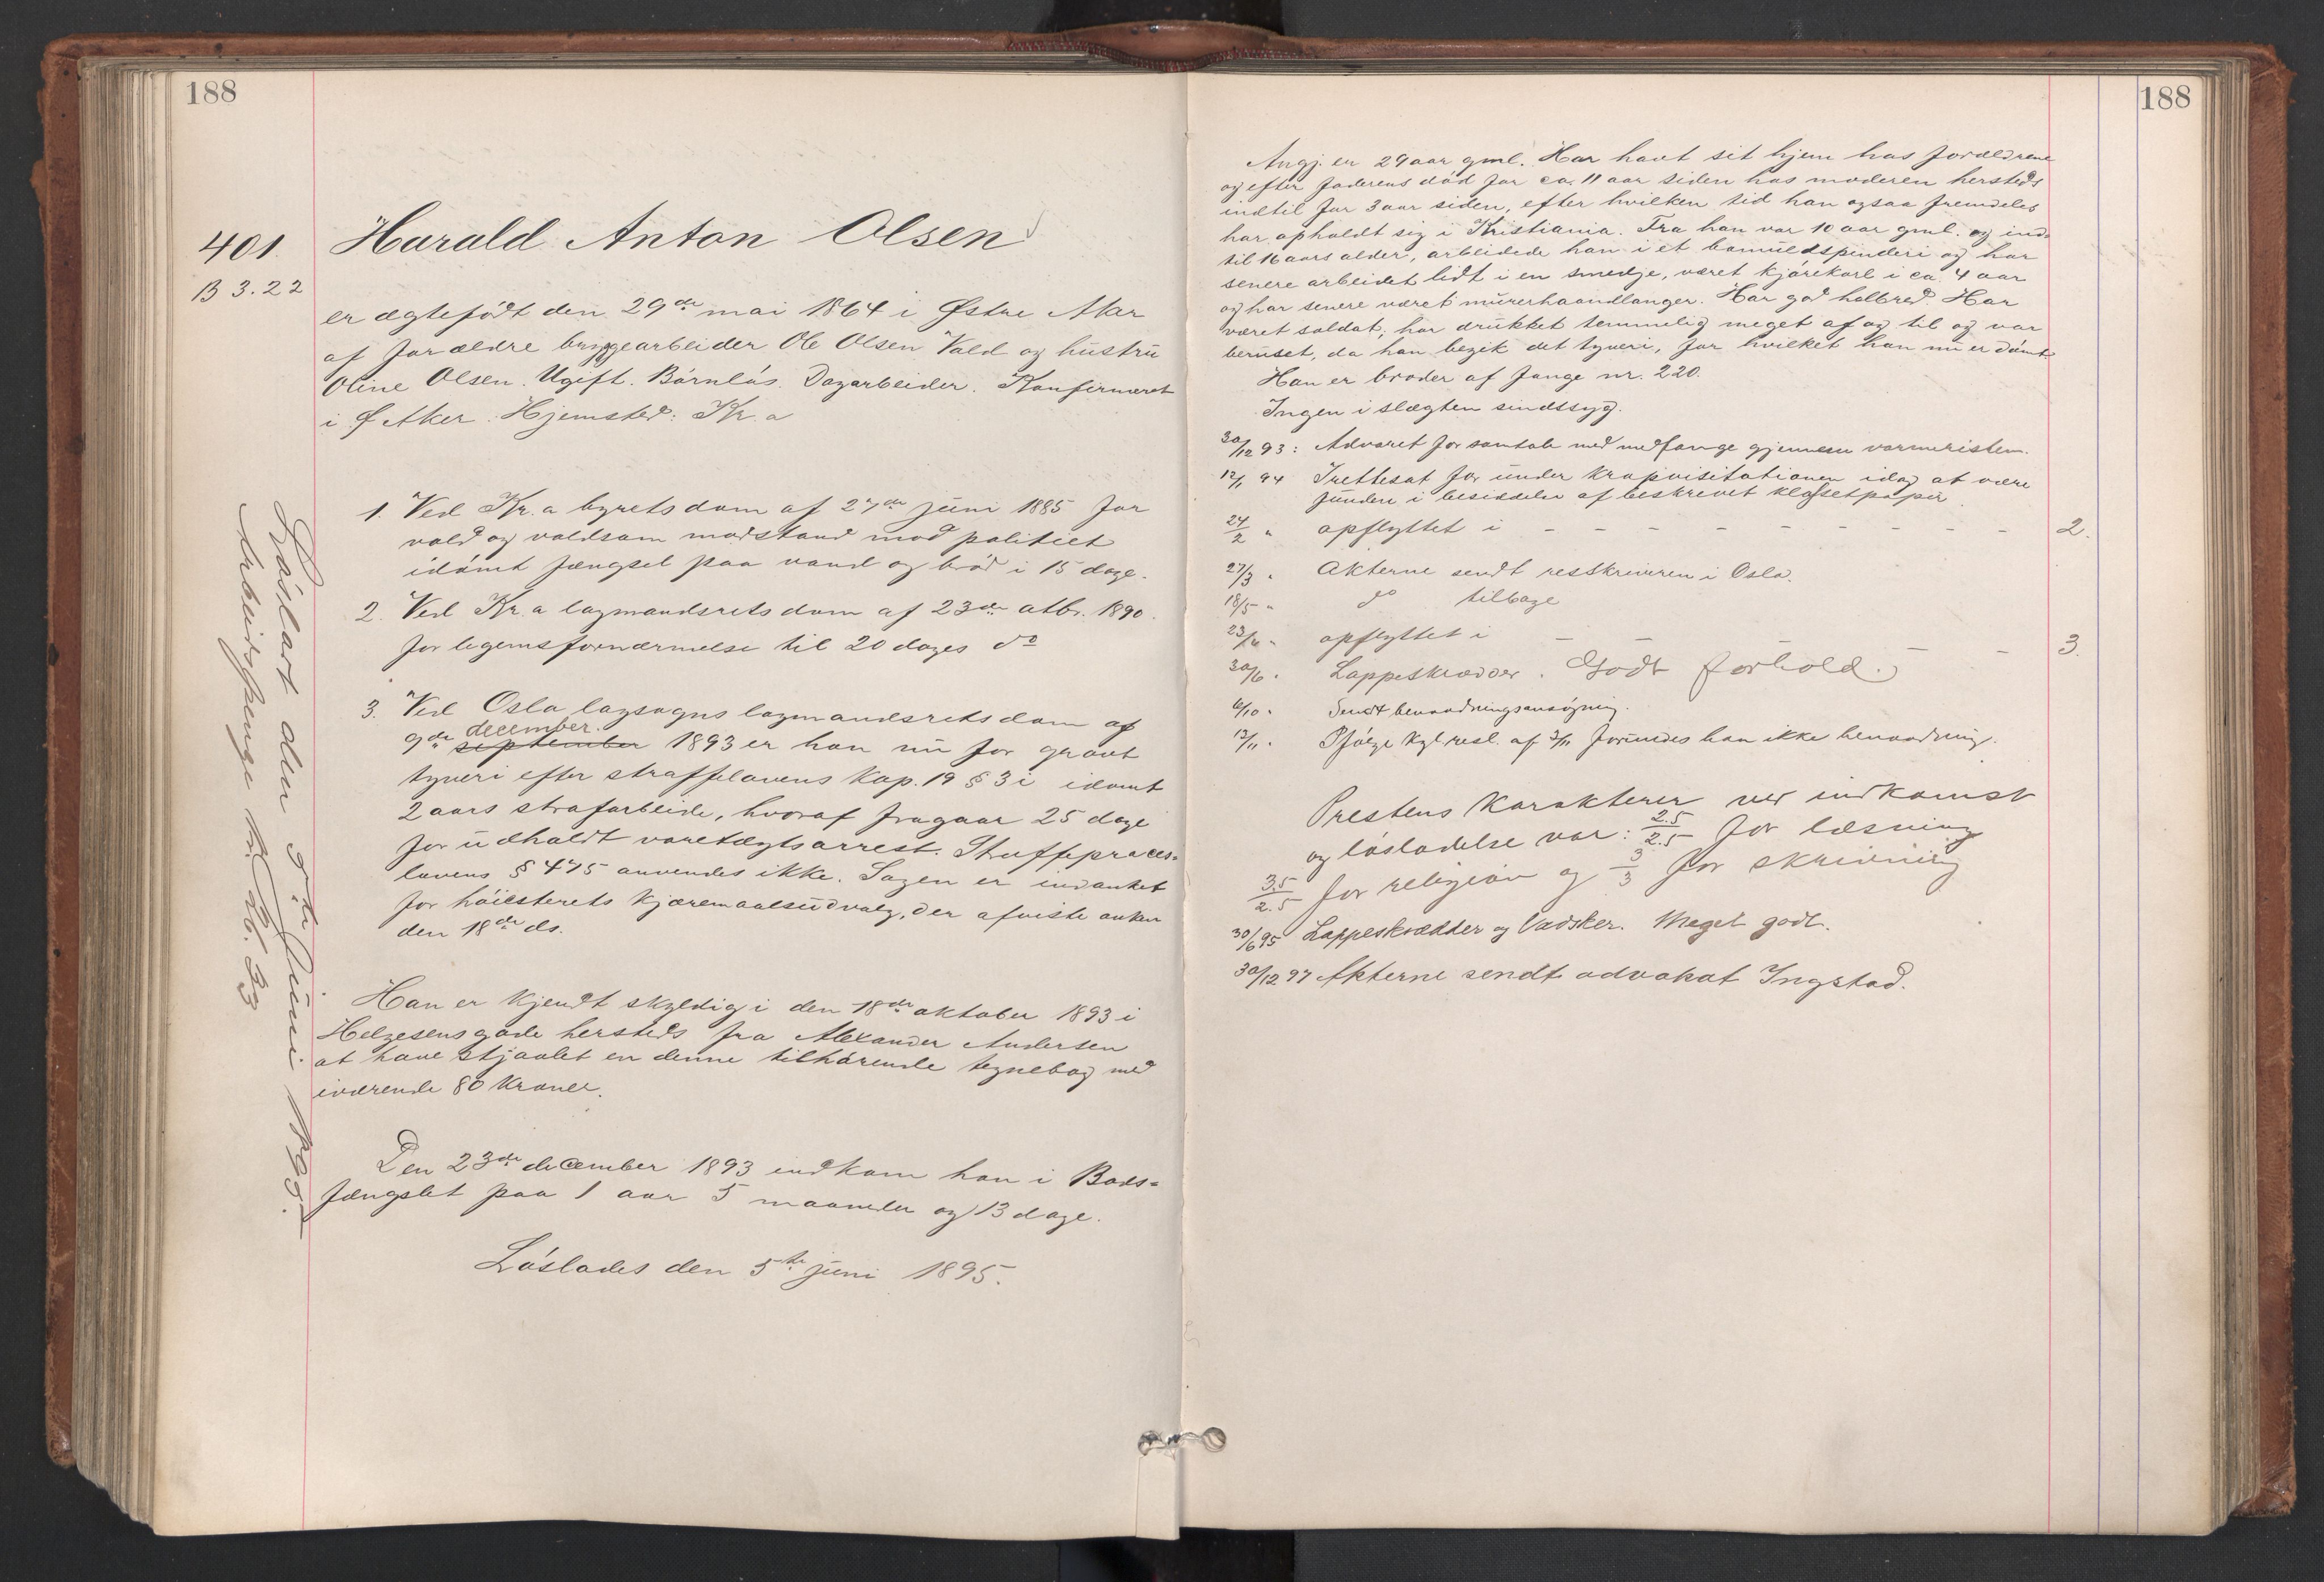 188
401.
B 3.22
Harald Anton Olsen
er ægtefödt den 29de mai 1864 i Østre Aker
af forældre bryggearbeider Ole Olsen Vald og hustru
Oline Olsen. Ugift. Börnlös. Dagarbeider. Konfirmeret
i Ø Aker. Hjemsted: Kr.a
1. Ved Kr.a byretsdom af 27de juni 1885 for
vold og voldsom modstand mod politiet
idömt fængsel paa vand og bröd i 15 dage.
2. Ved Kr.a lagmandsretsdom af 23de otbr. 1890.
for legemsfornærmelse til 20 dages do
3. Ved Oslo lagsogns lagmandsretsdom af
december.
9de september 1893 er han nu for grovt
tyveri efter straffelovens Kap. 19 § 3 i idömt
2 aars strafarbeide, hvoraf fragaar 25 dage
for udholdt varetægtsarrest. Straffeproces-
lovens § 475 anvendes ikke. Sagen er indanket
for höiesterets Kjæremaalsudvalg, der afviste anken
den 18de ds.
Han er kjendt skyldig i den 18de oktober 1893 i
Helgesensgade hersteds fra Alexander Andersen
at have stjaalet en denne tilhörende tegnebog med
iværende 80 Kroner.
Den 23de december 1893 indkom han i Bods-
fængslet paa 1 aar 5 maaneder og 13 dage.
Löslades den 5te juni 1895.
Lösladt den 5te Juni 1895.
Arbeidspenge Kr. 26.33
188
Angj. er 29 aar gml. Har havt sit hjem hos forældrene
og efter faderens död for ca. 11 aar siden hos moderen hersteds
indtil for 3 aar siden, efter hvilken tid han ogsaa fremdeles
har opholdt sig i Kristiania. Fra han var 10 aar gml. og ind-
til 16 aars alder, arbeidede han i et bomuldspinderi og har
senere arbeidet lidt i en smedje, været kjörekarl i ca. 4 aar
og har senere været murerhaandlanger. Har god helbred. Har
været soldat, har drukket temmelig meget af og til og var
beruset, da han begik det tyveri, for hvilket han nu er dömt.
Han er broder af fange nr. 220.
Ingen i slægten sindssyg.
30/12 93: Advaret for samtale med medfange gjennem varmeristen.
12/1 94 Irettesat for under Kropvisitationen idag at være
funden i besiddelse af beskrevet klosetpapir.
24/2 " opflyttet i - - - - - - - - - 2.
27/3 " Akterne sendt resskriveren i Oslo.
18/5 " do tilbage
23/6 " opflyttet i - - - - - 3.
30/6 " Lappeskrædder. Godt forhold.
6/10 " Sendt benaadningsansögning.
12/11 " Ifölge Kgl. resl. af 3/11 forundes han ikke benaadning.
Prestens Karakterer ved indkomst
og lösladelse var: 2.5/2.5 for læsning
3.5/2.5 for religion og 3/3 for skrivning
30/6 95 Lappeskrædder og Vadsker. Meget godt.
30/12 97 Akterne sendt advokat Ingstad.